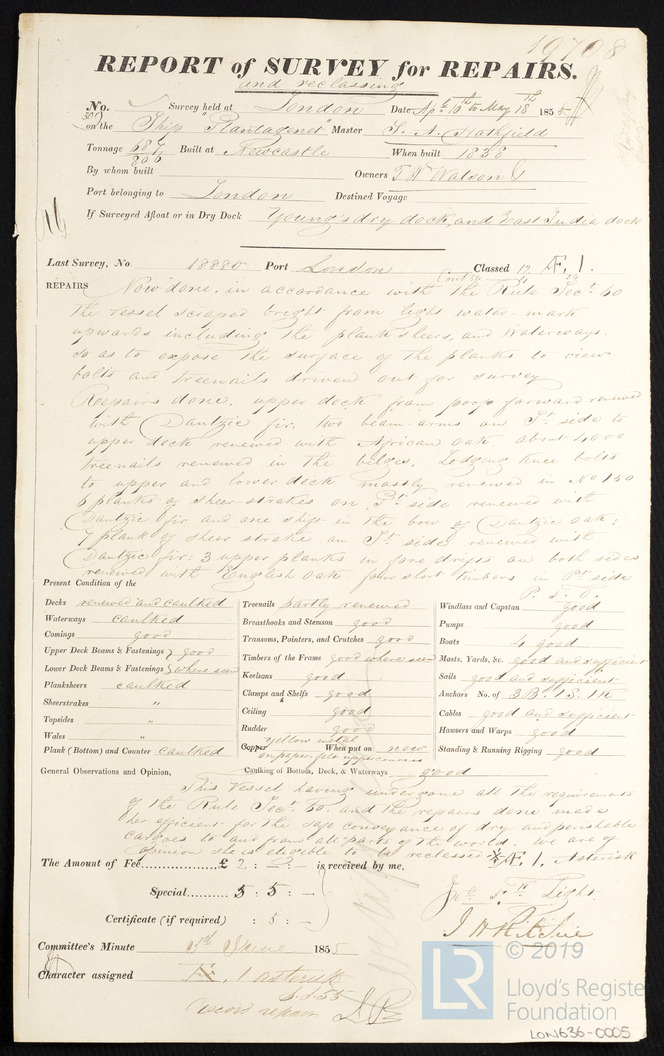 19708
REPORT of SURVEY for REPAIRS.
and reclassing
No. Survey held at London Date Apl 10th to May 18th 1855
on the Ship "Plantagenet" Master
Tonnage 687/806 Built at Newcastle When built 1838
By whom built Owners T W Watson
Port belonging to London Destined Voyage
If Surveyed Afloat or in Dry Dock Young's dry dock, and East India dock
Last Survey, No. 18880 Port London Classed 12 Æ. 1.
REPAIRS Now done, in accordance with the Rule Sect. 60
the vessel scraped bright from light water-mark
upwards including the planksheers, and Waterways.
so as to expose the surface of the planks to view
bolts and treenails driven out for survey
Repairs done. upper deck from poop forward renewed
with Dantzic fir, two beam-arms on St side to
upper deck renewed with African Oak about 4000
treenails renewed in the bilges, Lodging knee bolts
to upper and lower deck mostly renewed in No 150
6 planks of sheer strakes on Pt side renewed with
Dantzic fir and one ship in the bow of Dantzic Oak;
7 plank of sheer strake on St side renewed with
Dantzic fir: 3 upper planks in fore drifts on both sides
renewed with English Oak. four short timbers in Pt side
P. T. O.
Present Condition of the
Decks renewed and caulked
Waterways caulked
Comings good
Upper Deck Beams & Fastenings } good
Lower Deck Beams & Fastenings } where seen
Planksheers caulked
Sheerstrakes "
Topsides "
Wales "
Plank (Bottom) and Counter caulked
Treenails partly renewed
Breasthooks and Stemson good
Transoms, Pointers, and Crutches good
Timbers of the Frame good where seen
Keelsons good
Clamps and Shelfs good
Ceiling good
Rudder good
yellow metal
Copper When put on now
on paper, felt upper courses
Caulking of Bottom, Deck, & Waterways good
Windlass and Capstan good
Pumps good
Boats 4 good
Masts, Yards, &c. good and sufficient
Sails good and sufficient
Anchors No. of 3 B. 1 S. 1 K
Cables good and sufficient
Hausers and Warps good
Standing & Running Rigging good
General Observations and Opinion,
This Vessel having undergone all the requirements
of the Rule Sect. 60. and the repairs done made
her efficient for the safe conveyance of dry and perishable
cargoes to and from all parts of the world. We are of
opinion she is eligible to be reclassed Æ. 1. Asterisk
The Amount of Fee £ 2 : - : - is received by me,
Special 5 : 5 : -
Certificate (if required) : 5 : -
Light
J H Ritchie
Committee's Minute 5th June 1855
Character assigned Æ. 1 asterisk
5.55
record repairs
© 2019
LR
Lloyd's Register
Foundation
LON636-0005